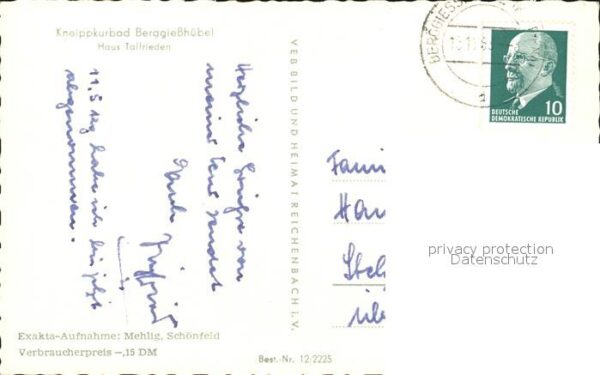 Kneippkurbad Berggießhübel
Haus Talfrieden
Herzliche Grüße von
meiner Kur sendet
11,5 kg habe ich bis jetzt
abgenommen.
VEB BILD UND HEIMAT REICHENBACH i. V.
BERGGIESS
10
DEUTSCHE
DEMOKRATISCHE REPUBLIK
a
Fami
Hau
privacy protection
Datenschutz
Exakta-Aufnahme: Mehlig, Schönfeld
Verbraucherpreis —,15 DM
Best.-Nr. 12/2225